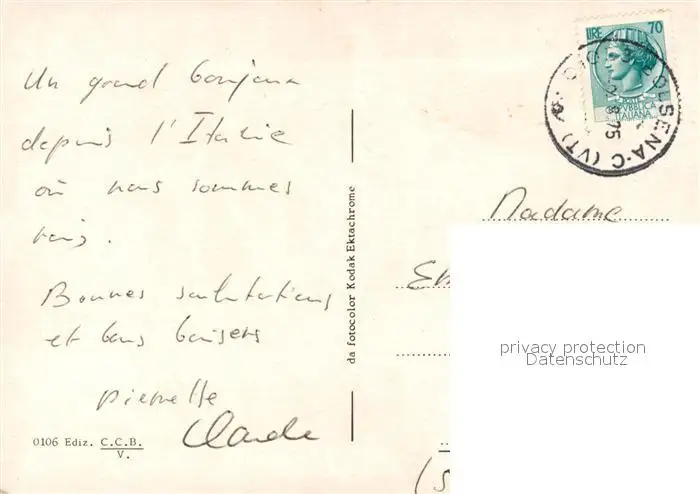 Un grand bonjour
depuis l'Italie
où nous sommes
Bonnes salutations
et bons baisers
Pierrette
Claude
0106 Ediz. C.C.B.
V.
da fotocolor Kodak Ektachrome
LIRE 70
POSTE
REPUBBLICA
ITALIANA
BOLSENA·C (VT)
75
Madame
privacy protection
Datenschutz